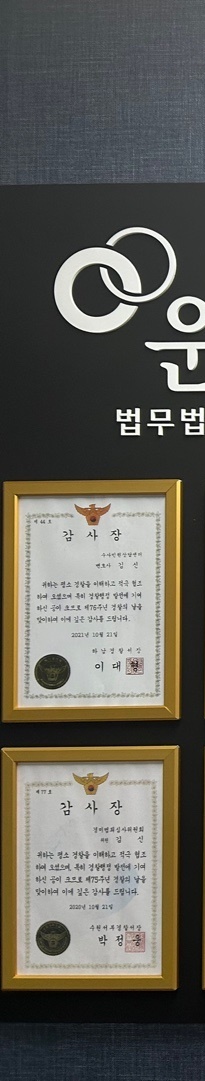 운
법무법
제 44 호
감 사 장
수사민원상담센터
변호사 김 선
귀하는 평소 경찰을 이해하고 적극 협조
하여 오셨으며 특히 경찰행정 발전에 기여
하신 공이 크므로 제76주년 경찰의 날을
맞이하여 이에 깊은 감사를 드립니다.
2021년 10월 21일
하남경찰서장
이 대 형
제 77 호
감 사 장
경미범죄심사위원회
위원 김 선
귀하는 평소 경찰을 이해하고 적극 협조
하여 오셨으며 특히 경찰행정 발전에 기여
하신 공이 크므로 제75주년 경찰의 날을
맞이하여 이에 깊은 감사를 드립니다.
2020년 10월 21일
수원서부경찰서장
박 정 웅